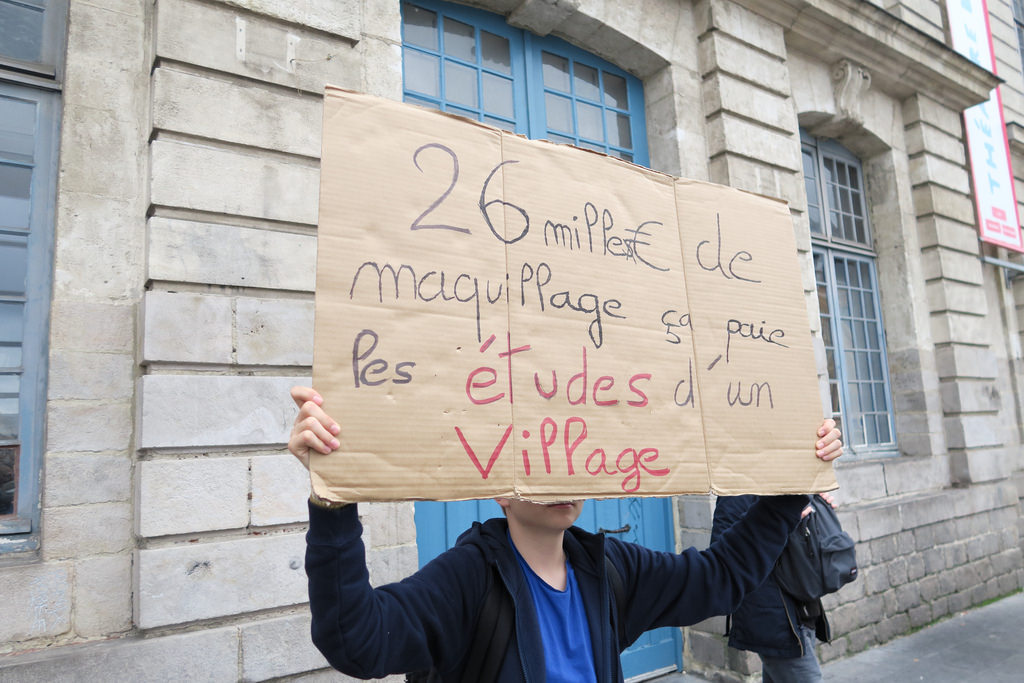 26 milles € de
maquillage ça paie
les études d'un
Village
THÉÂTRE